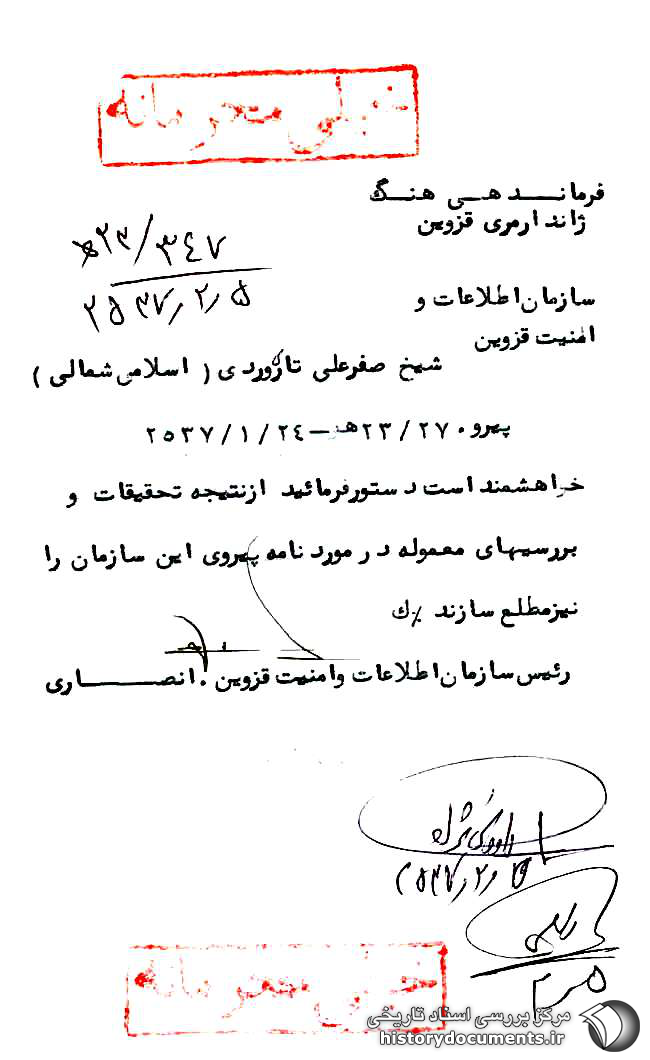 خیلی محرمانه
فرماندهی هنگ
ژاندارمری قزوین
۲۳/۳۴۷ﻫ
۲۵۳۷/۲/۵
سازمان اطلاعات و
امنیت قزوین
شیخ صفرعلی تاروردی ( اسلامی شمالی )
پیرو ۲۳/۲۷۰هـ – ۲۵۳۷/۱/۲٤
خواهشمند است دستور فرمائید از نتیجه تحقیقات و
بررسیهای معموله در مورد نامه پیروی این سازمان را
نیز مطلع سازند ./ك
رئیس سازمان اطلاعات و امنیت قزوین . انصاری
۲۵۳۷/۲/۵
خیلی محرمانه
مرکز بررسی اسناد تاریخی
historydocuments.ir